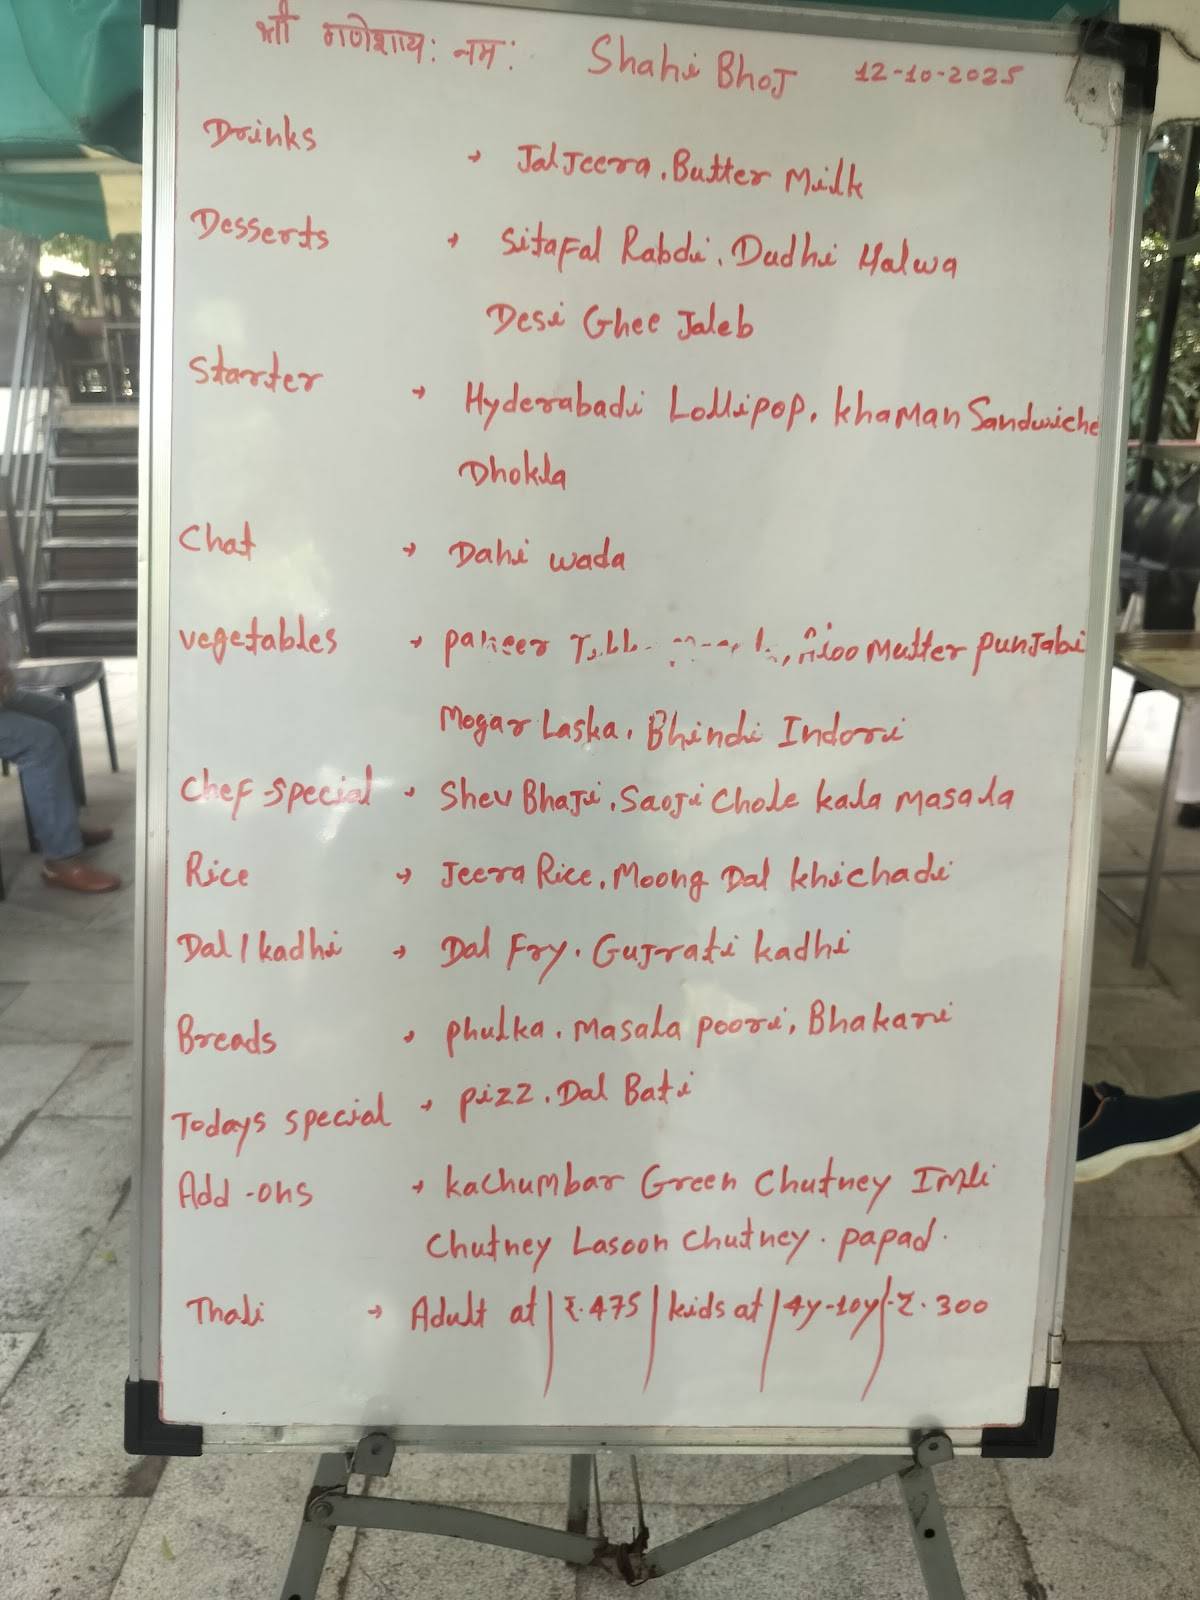 श्री गणेशाय: नम: Shahi Bhoj 12-10-2025
Drinks → JalJeera. Butter Milk
Desserts → Sitafal Rabdi. Dudhi Halwa
Desi Ghee Jaleb
Starter → Hyderabadi Lollipop. Khaman Sandwiche
Dhokla
Chat → Dahi wada
vegetables → paneer , Aloo Mutter punJabi
Mogar Laska. Bhindi Indori
Chef special → Shev BhaJi. SaoJi Chole kala masala
Rice → Jeera Rice. Moong Dal khichadi
Dal / kadhi → Dal Fry. GuJrati kadhi
Breads → phulka. masala poori, Bhakari
Todays special → pizz. Dal Bati
Add-ons → kachumbar Green Chutney Imli
Chutney Lasoon Chutney. papad.
Thali → Adult at | ₹.475 | kids at | 4y-10y | - ₹.300